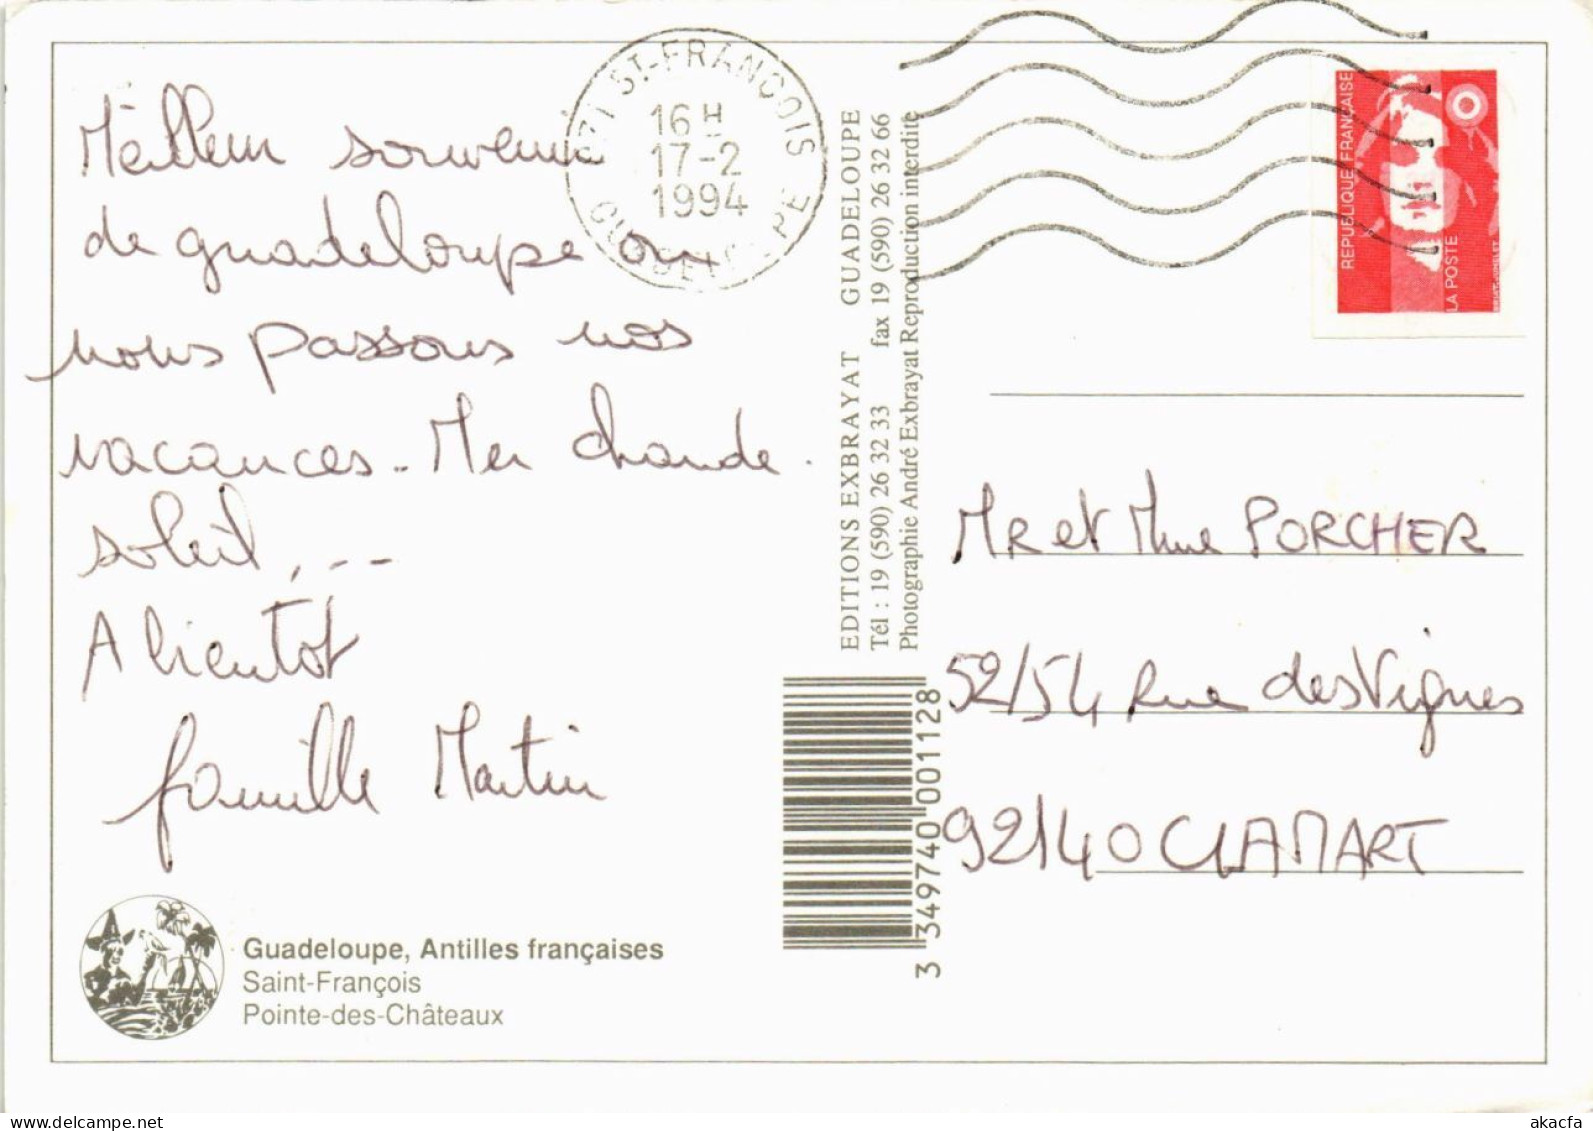 Meilleur souvenir
de guadeloupe ou
nous passons nos
vacances.. Mer chaude.
soleil, ...
A bientôt
famille Martin
Guadeloupe, Antilles françaises
Saint-François
Pointe-des-Châteaux
971 ST-FRANCOIS
16 H
17-2
1994
GUADELOUPE
EDITIONS EXBRAYAT GUADELOUPE
Tél : 19 (590) 26 32 33 fax 19 (590) 26 32 66
Photographie André Exbrayat Reproduction interdite
3 349740 001128
REPUBLIQUE FRANÇAISE
LA POSTE
MR et Mme PORCHER
52/54 Rue des Vignes
92140 CLAMART
akacfa
delcampe.net